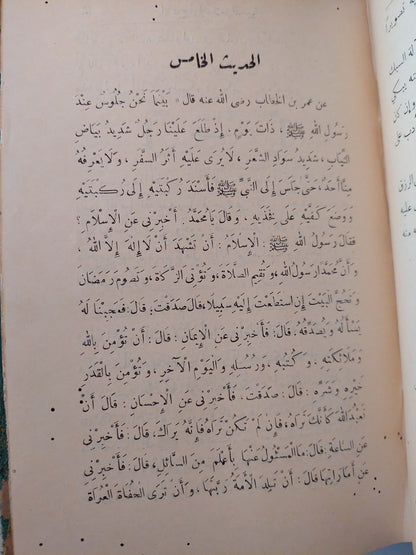 الحديث الخامس
عن عمر بن الخطاب رضى الله عنه قال « بَيْنَمَا نَحْنُ جُلُوسٌ عِنْدَ
رَسُولِ اللهِ ﷺ ، ذَاتَ يَوْمٍ . إِذْ طَلَعَ عَلَيْنَا رَجُلٌ شَدِيدُ بَيَاضِ
الثِّيَابِ ، شَدِيدُ سَوَادِ الشَّعَرِ ، لَا يُرَى عَلَيْهِ أَثَرُ السَّفَرِ ، وَلَا يَعْرِفُهُ
مِنَّا أَحَدٌ ، حَتَّى جَلَسَ إِلَى النَّبِىِّ ﷺ فَأَسْنَدَ رُكْبَتَيْهِ إِلَى رُكْبَتَيْهِ
وَوَضَعَ كَفَّيْهِ عَلَى فَخِذَيْهِ . وَقَالَ يَا مُحَمَّدُ . أَخْبِرْنِى عَنِ الْإِسْلَامِ ؟
فقالَ رَسُولُ اللهِ ﷺ : الْإِسْلَامُ : أَنْ تَشْهَدَ أَنْ لَا إِلٰهَ إِلَّا اللهُ ،
وَأَنَّ مُحَمَّدًا رَسُولُ اللهِ ، وَتُقِيمَ الصَّلَاةَ ، وَتُؤْتِىَ الزَّكَاةَ ، وَتَصُومَ رَمَضَانَ
وَتَحُجَّ الْبَيْتَ إِنِ اسْتَطَعْتَ إِلَيْهِ سَبِيلًا ، قَالَ صَدَقْتَ : قَالَ : فَعَجِبْنَا لَهُ
يَسْأَلُهُ وَيُصَدِّقُهُ . قَالَ : فَأَخْبِرْنِى عَنِ الْإِيمَانِ : قَالَ : أَنْ تُؤْمِنَ بِاللهِ
وَمَلَائِكَتِهِ . وَكُتُبِهِ . وَرُسُلِهِ وَالْيَوْمِ الْآخِرِ ، وَتُؤْمِنَ بِالْقَدَرِ
خَيْرِهِ وَشَرِّهِ : قَالَ : صَدَقْتَ . قَالَ فَأَخْبِرْنِى عَنِ الْإِحْسَانِ : قَالَ أَنْ
تَعْبُدَ اللهَ كَأَنَّكَ تَرَاهُ ، فَإِنْ لَمْ تَكُنْ تَرَاهُ فَإِنَّهُ يَرَاكَ ، قَالَ : فَأَخْبِرْنِى
عَنِ السَّاعَةِ : قَالَ : مَا الْمَسْئُولُ عَنْهَا بِأَعْلَمَ مِنَ السَّائِلِ ، قَالَ : فَأَخْبِرْنِى
عَنْ أَمَارَاتِهَا قَالَ : أَنْ تَلِدَ الْأَمَةُ رَبَّتَهَا ، وَأَنْ تَرَى الْحُفَاةَ الْعُرَاةَ